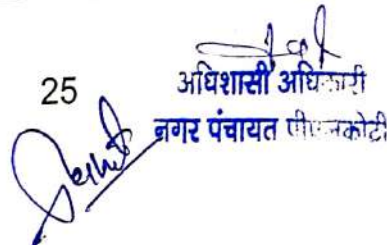 25
अधिशासी अधिकारी
नगर पंचायत पीपलकोटी